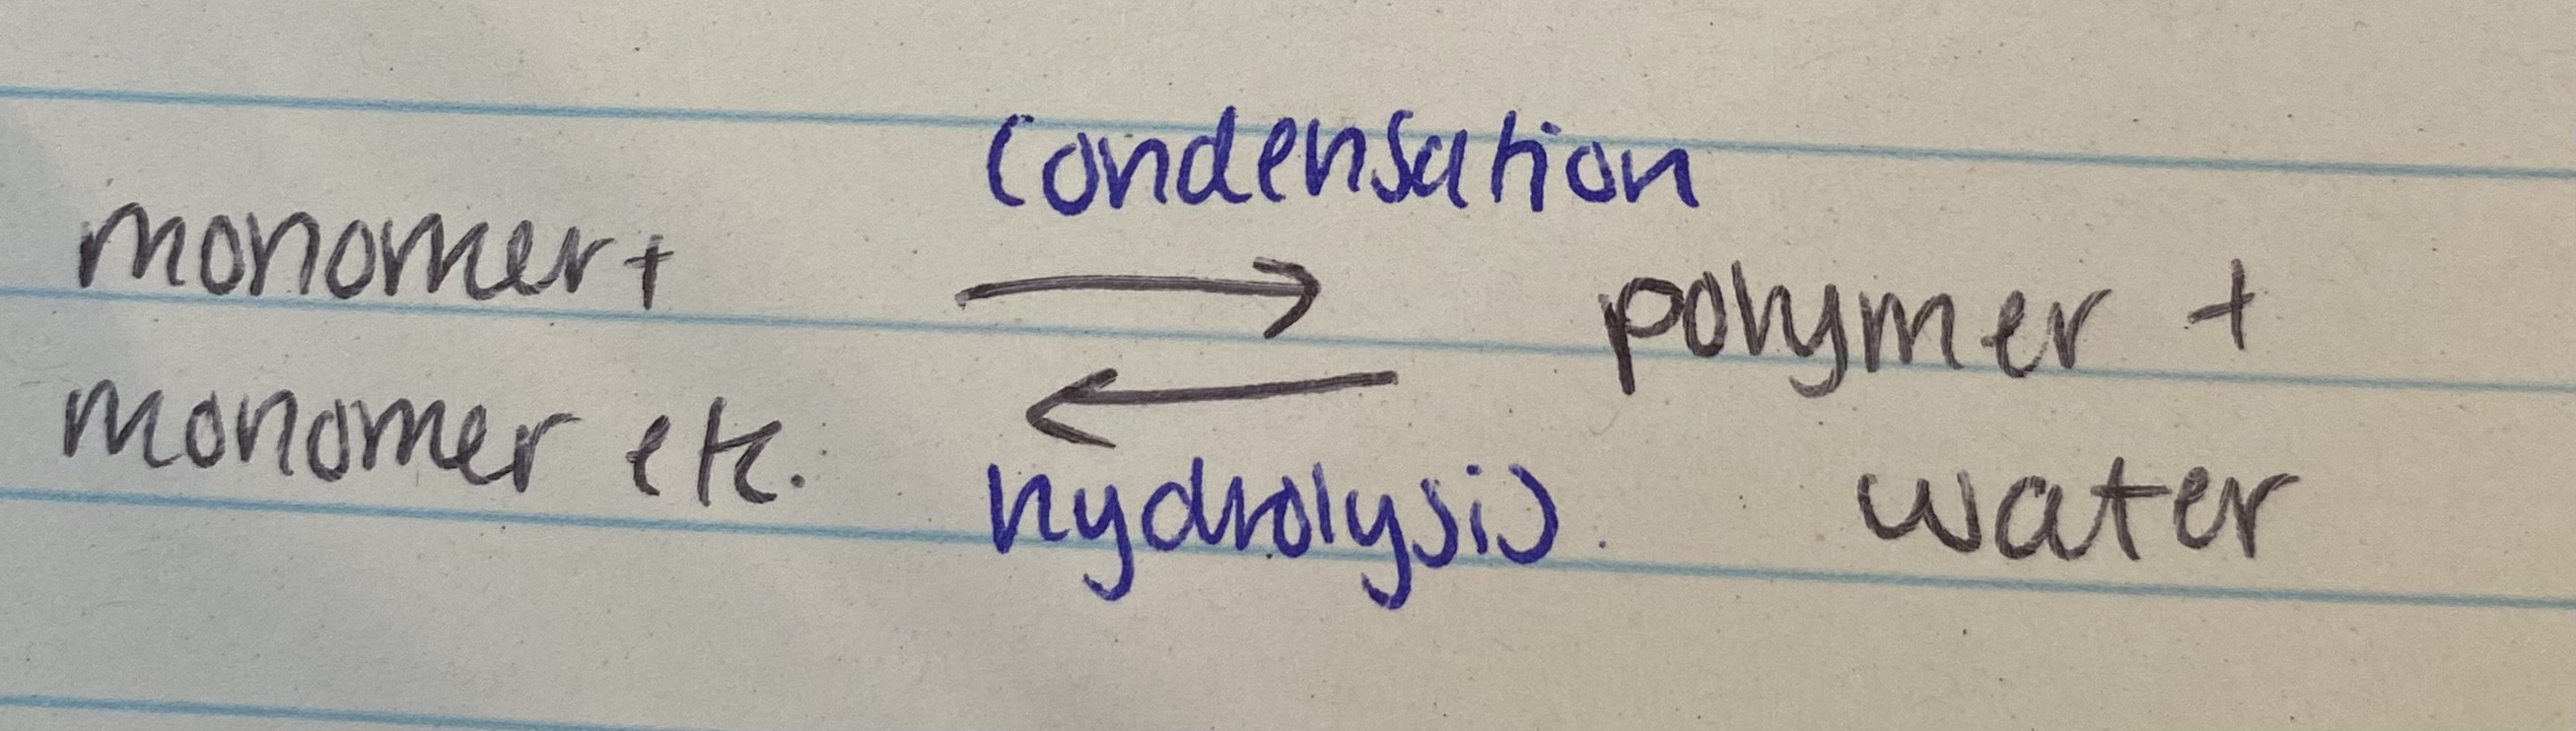 condensation
monomer+ → polymer +
monomer etc. ← water
hydrolysis.